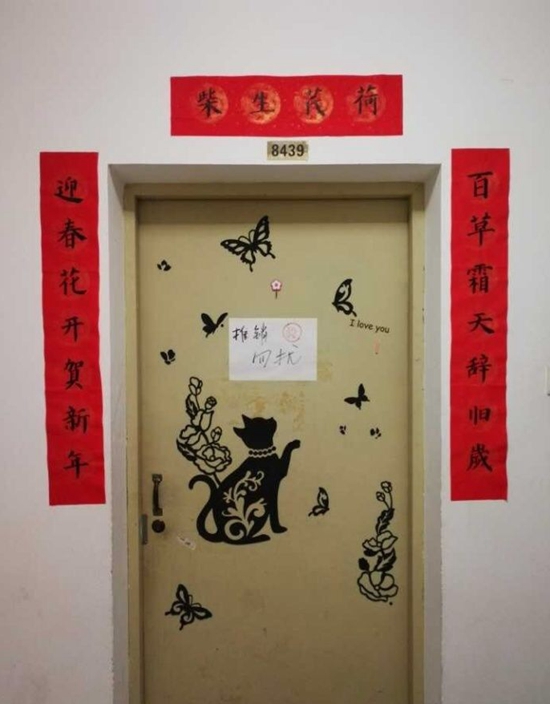 柴生芪荷
8439
百草霜天辞旧歲
迎春花开贺新年
I love you
推销
勿扰